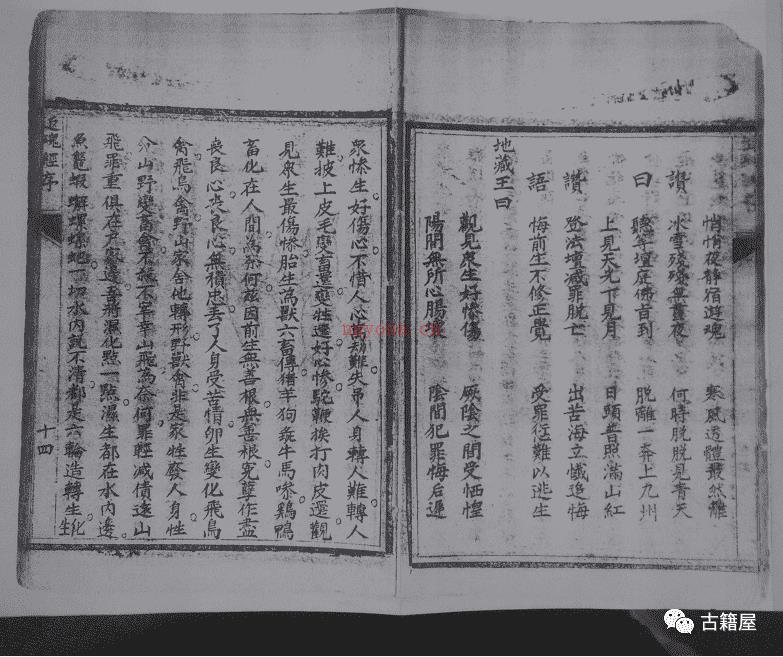 悄悄夜静宿遊魂 寒風透體最然難
讚 冰雪殘殘無晝夜 何時脱脱見青天
曰 聽等壇庭佛音到 脱離一奔上九州
上見天光下見月 日頭普照滿山紅
讚 登法壇滅罪脱亡 出苦海立懺追悔
語 悔前生不修正覺 受罪愆難以逃生
地藏王曰
觀見衆生好慘傷 厥陰之間受恓惶
陽間無所心腸 陰間犯罪悔后遲
衆慘生好傷心不惜人心 難失吊人身轉人難轉人
難披上皮毛變畜還變牲還好心慘駝鞭挨打肉皮還觀
見衆生最傷慘胎生為獸六畜傳猪羊狗 牛馬 鷄鴨
畜化在人間為奈何兹因前生無善根無善根冤孽作盡
喪良心喪良心無積忠丢了人身受苦情卵生變化飛鳥
禽飛鳥禽野山家合他轉形野獸禽非是家牲廢人身牲
分山野變畜禽不 不宰幸山飛為奈何罪輕減債遠山
飛罪重俱在 邊 將濕化㸃一㸃濕生都在水内邊
魚鱉蝦 螺 蛇一切水内説不清都是六輪造轉生化生
近魂經序
十四
nayona.cn
古籍屋